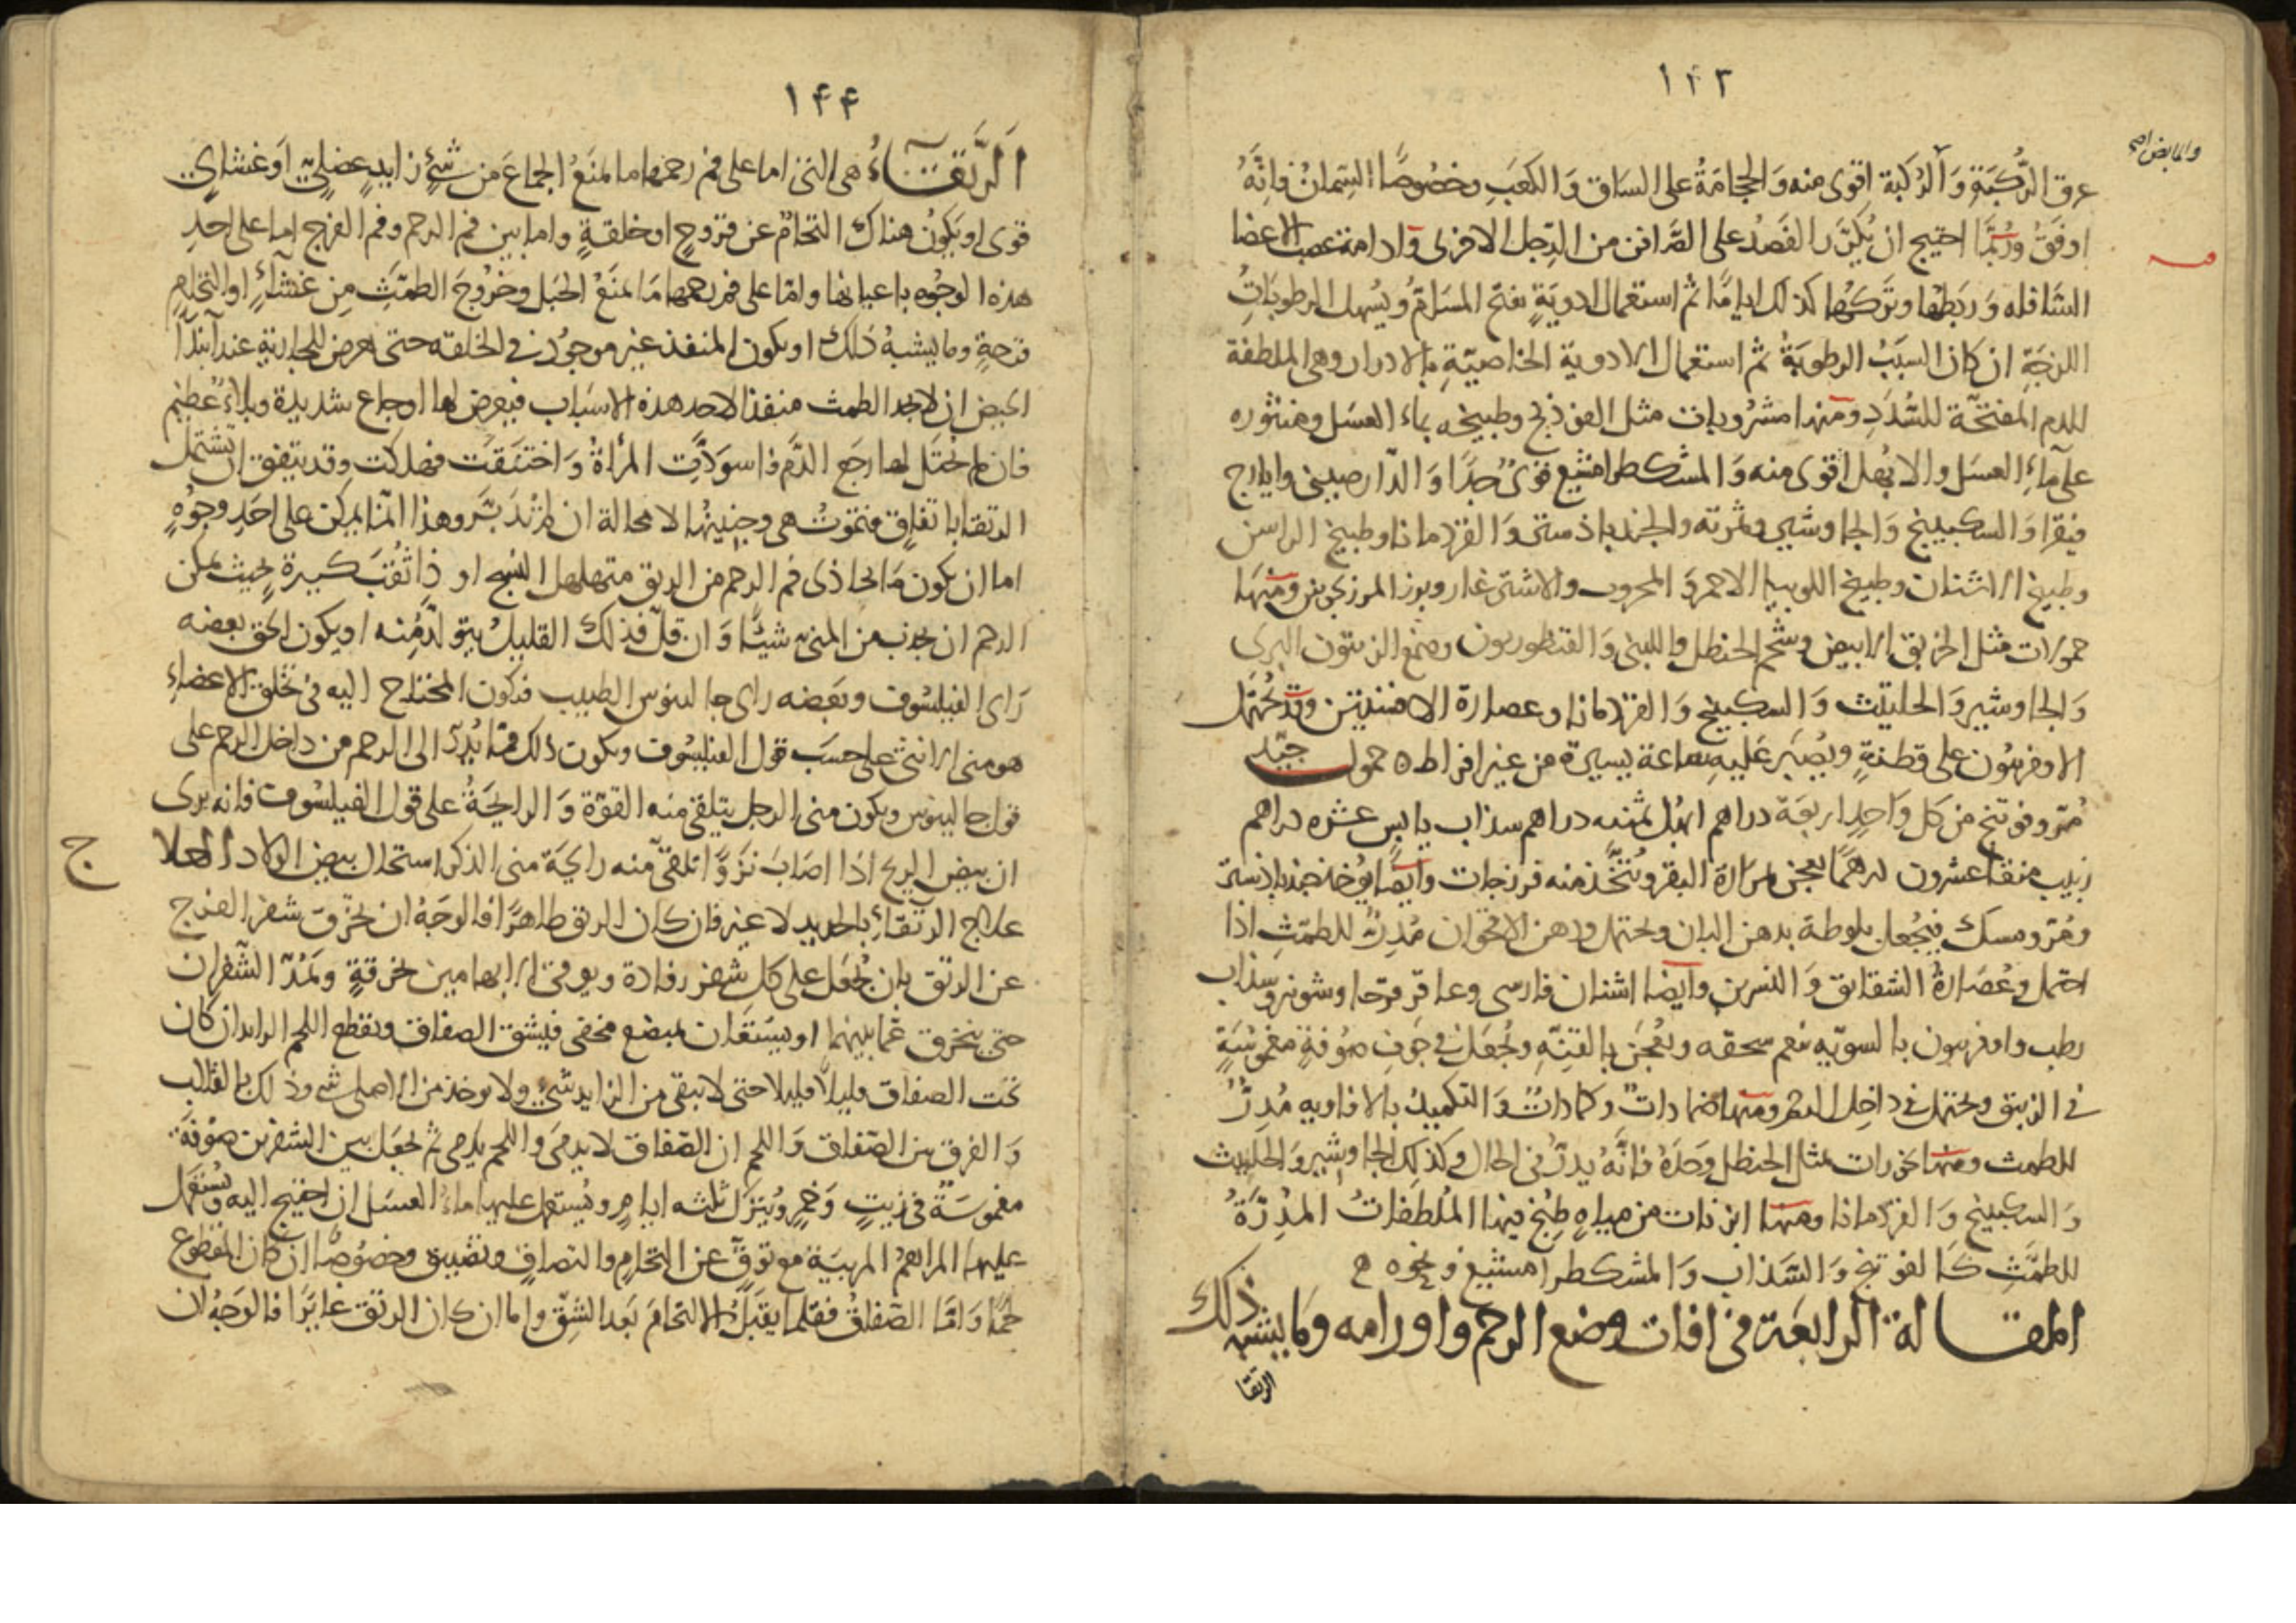 ١٤٣
والمابض اصح
عرق الرُّكبَةِ وَالرُكبَة اقوى منه وَالحجَامَةُ على السَاق وَالكعَبِ وخصُوصًا السِمانُ فانَّهُ
اوفَقُ ورُبَّما احتيج ان يُكرّرَ الفَصدُ على الصَّافن من الرِّجل الاخرى وَادامة عصب الاعضا
السَافله وَرَبطُها وتَركُها كذلك ايامًا ثم استعمال ادويَةٍ تفتح المسَامَّ ويُسهل الرطوبَاتِ
اللزجَةِ ان كان السبَبُ الرطوبَةُ ثم استعمال الادوية الخاصيّةِ بالادرار وهى الملطفة
للدم المفتحّة للسُّدَدِ ومنها مشرُوبات مثل الفوذنج وطبيخه بماء العسَل ومنثوره
على مآءِ العسَل والابُهل اقوى منه وَالمشكطرامشيع قوىٌّ جِدًا وَالدّارصينى وايارج
فيقرا وَالسكبينج وَالجاوشير وثمرته والجندبادستر وَالقردمانا وطبيخ الراسن
وطبيخ الاشنان وطبيخ اللوبيا الاحمر وَالمحروت والاشترغاز وبزر المرزنجوش ومنهَا
حمولات مثل الخربق الابيض وشحم الحنظل واللبنى وَالقنطوريون وصمغ الزيتون البرى
وَالجاوشير وَالحلتيث وَالسكبينج وَالقردمانا وعصارة الافسنتين وقد تُحتمَل
الاوفربيون على قطنةٍ ويُصبَر عَليهِ ساعة يسيرة من غير افراط ه حمول جيّد
مُرّ وفوتنج من كل وَاحِدٍ اربعَة دراهم ابهُل ثمنيه دراهم سذاب يابس عشره دراهم
زبيب منقا عشرون درهمًا يعجن بمرَارة البقر ويُتخّذ منه فرزجات وايضًا يؤخذ جندبادستر
ومُرّ ومسك فيجُعل بلوطة بدهن البان ويحتمل ودهن الاقحوان مُدِرٌّ للطمّثِ اذا
احتمل وعُصَارةُ الشقايق وَالنسرين وايضا اشنان فارسى وعاقرقرحا وشونيز وسذاب
رطب واوفربيون بالسويّه ينعم سحقه ويُعجَن بالقنّهِ ويُجعَل فى جَوفِ صُوفةٍ مغموسَةٍ
فى الزيبق ويحتمل فى داخِل الرحم ومنها ضمادات وكمادَاتٌ وَالتكميدُ بالافاويه مُدِرٌّ
للطمث ومنها بخورات مثل الحنظل وَحدَهُ فانَّهُ يدرُّ فى الحال وكذلك الجاوشير وَالحلتيث
وَالسكبينج وَالقردمانا ومنها ابزنات من مياهٍ طبُخ فيها المُلطفاتُ المدُِرّةُ
للطمّثِ كَالفوتنج وَالسّذاب وَالمشكطرامشيع ونحوه
المقالة الرابعَة فى افات وضع الرحم واورامه وَما يشبه ذلك
الرتقا
١٤٤
الرَّتقَآءُ هى التى اما على فم رحمها ما يمنَعُ الجماعَ من شىٍٔ زايدٍ عضلىٍّ اوَ غشاىٍٔ
قوى او يَكونُ هناك التحامٌ عن قروحٍ او خلقةٍ واما بين فم الرحم وفم الفرج اما على احدِ
هذه الوجُوه باعيانها وامّا على فم رحمها مَا يمنَعُ الحبَل وخرُوجَ الطمّثِ مِن غشآءٍ او التحامِ
قرحةٍ وما يشبهُ ذلك او يكون المنفذ غير موجُود فى الخلقه حتى يعرض للجاريةِ عند ابتدآ
الحيض ان لا يجد الطمث منفذا لاحد هذه الاسبَاب فيعرض لها اوجاع شديدة وبلآءٌ عظيم
فان لم يُحتَل لها رجَع الدَّم فاسودَّتِ المرأةُ وَاختنَقَت فهلكت وقد يتفق ان تشتمل
الرتقا باتفاقٍ فتموتُ هى وجنينهُا لا محالة ان لم تدَبَّر وهذا انما يمكن على احَدِ وجُوهٍ
اما ان يكون مَا يحاذى فم الرحم من الرتق متهلهل النسج او ذا ثقُبَ كبيرةٍ بحيث يمكن
الرحم ان يجذب من المنى شيئًا وَان قلّ فذلك القليلُ يتولّد مِنه او يكون الحق بعضه
رَاى الفيلسُوف وبعَضه راى جالينوس الطبيب فيكون المحتاج اليه فى تخلق الاعضآءِ
هو منى الانثى على حسَب قول الفيلسوف ويكون ذلك ممّا يُدرّ الى الرحم من داخل الرحم على
قول جالينوس ويكون منى الرجل يتلقى منه القوّة وَالرايحَةُ على قول الفيلسوف فانه يرى
ان بيض الريح اذا اصَابَ نَزوًا تلقّى منه رايحَة منى الذكر استحال بيض الولاد العلا
ج
علاج الرتقآءِ بالحديد لا غير فان كان الرتق ظاهرًا فالوجَهُ ان يخرّق شفر الفرج
عن الرتق بان يُجعَل على كل شفر رفادة ويوقى الابهامين بخرقةٍ ويَمُدّ الشفران
حتى ينخرق عمّا بينهما او يستَعَان بمبضع مخفى فيشق الصفاق ويقطع اللحم الزايد ان كان
تحت الصفاق قليلًا قليلا حتى لا يبقى من الزايد شئ ولا يوخذ من الاصلى شى وذلك بالقالب
وَالفرق بين الصّفاق وَاللحم ان الصّفاق لا يدمَى وَاللحم يدمى ثم يجعَل بين الشفرين صُوفَة
مغموسَةٌ فى زيتٍ وَخمرٍ ويُترَك ثلثه ايامٍ ويُستعمل عليها ماءُ العسَل ان احتيج اليه ويُستَعمل
عليها المراهمُ المرببَة مع توقٍّ عن التحامٍ والتصاقٍ وتضييق وخصُوصًا ان كان المقطوع
لحمًا وَامّا الصّفاقُ فقلما يقبَلُ الالتحامَ بَعد الشِقّ واما ان كان الرتق غايرًا فالوَجهُ ان